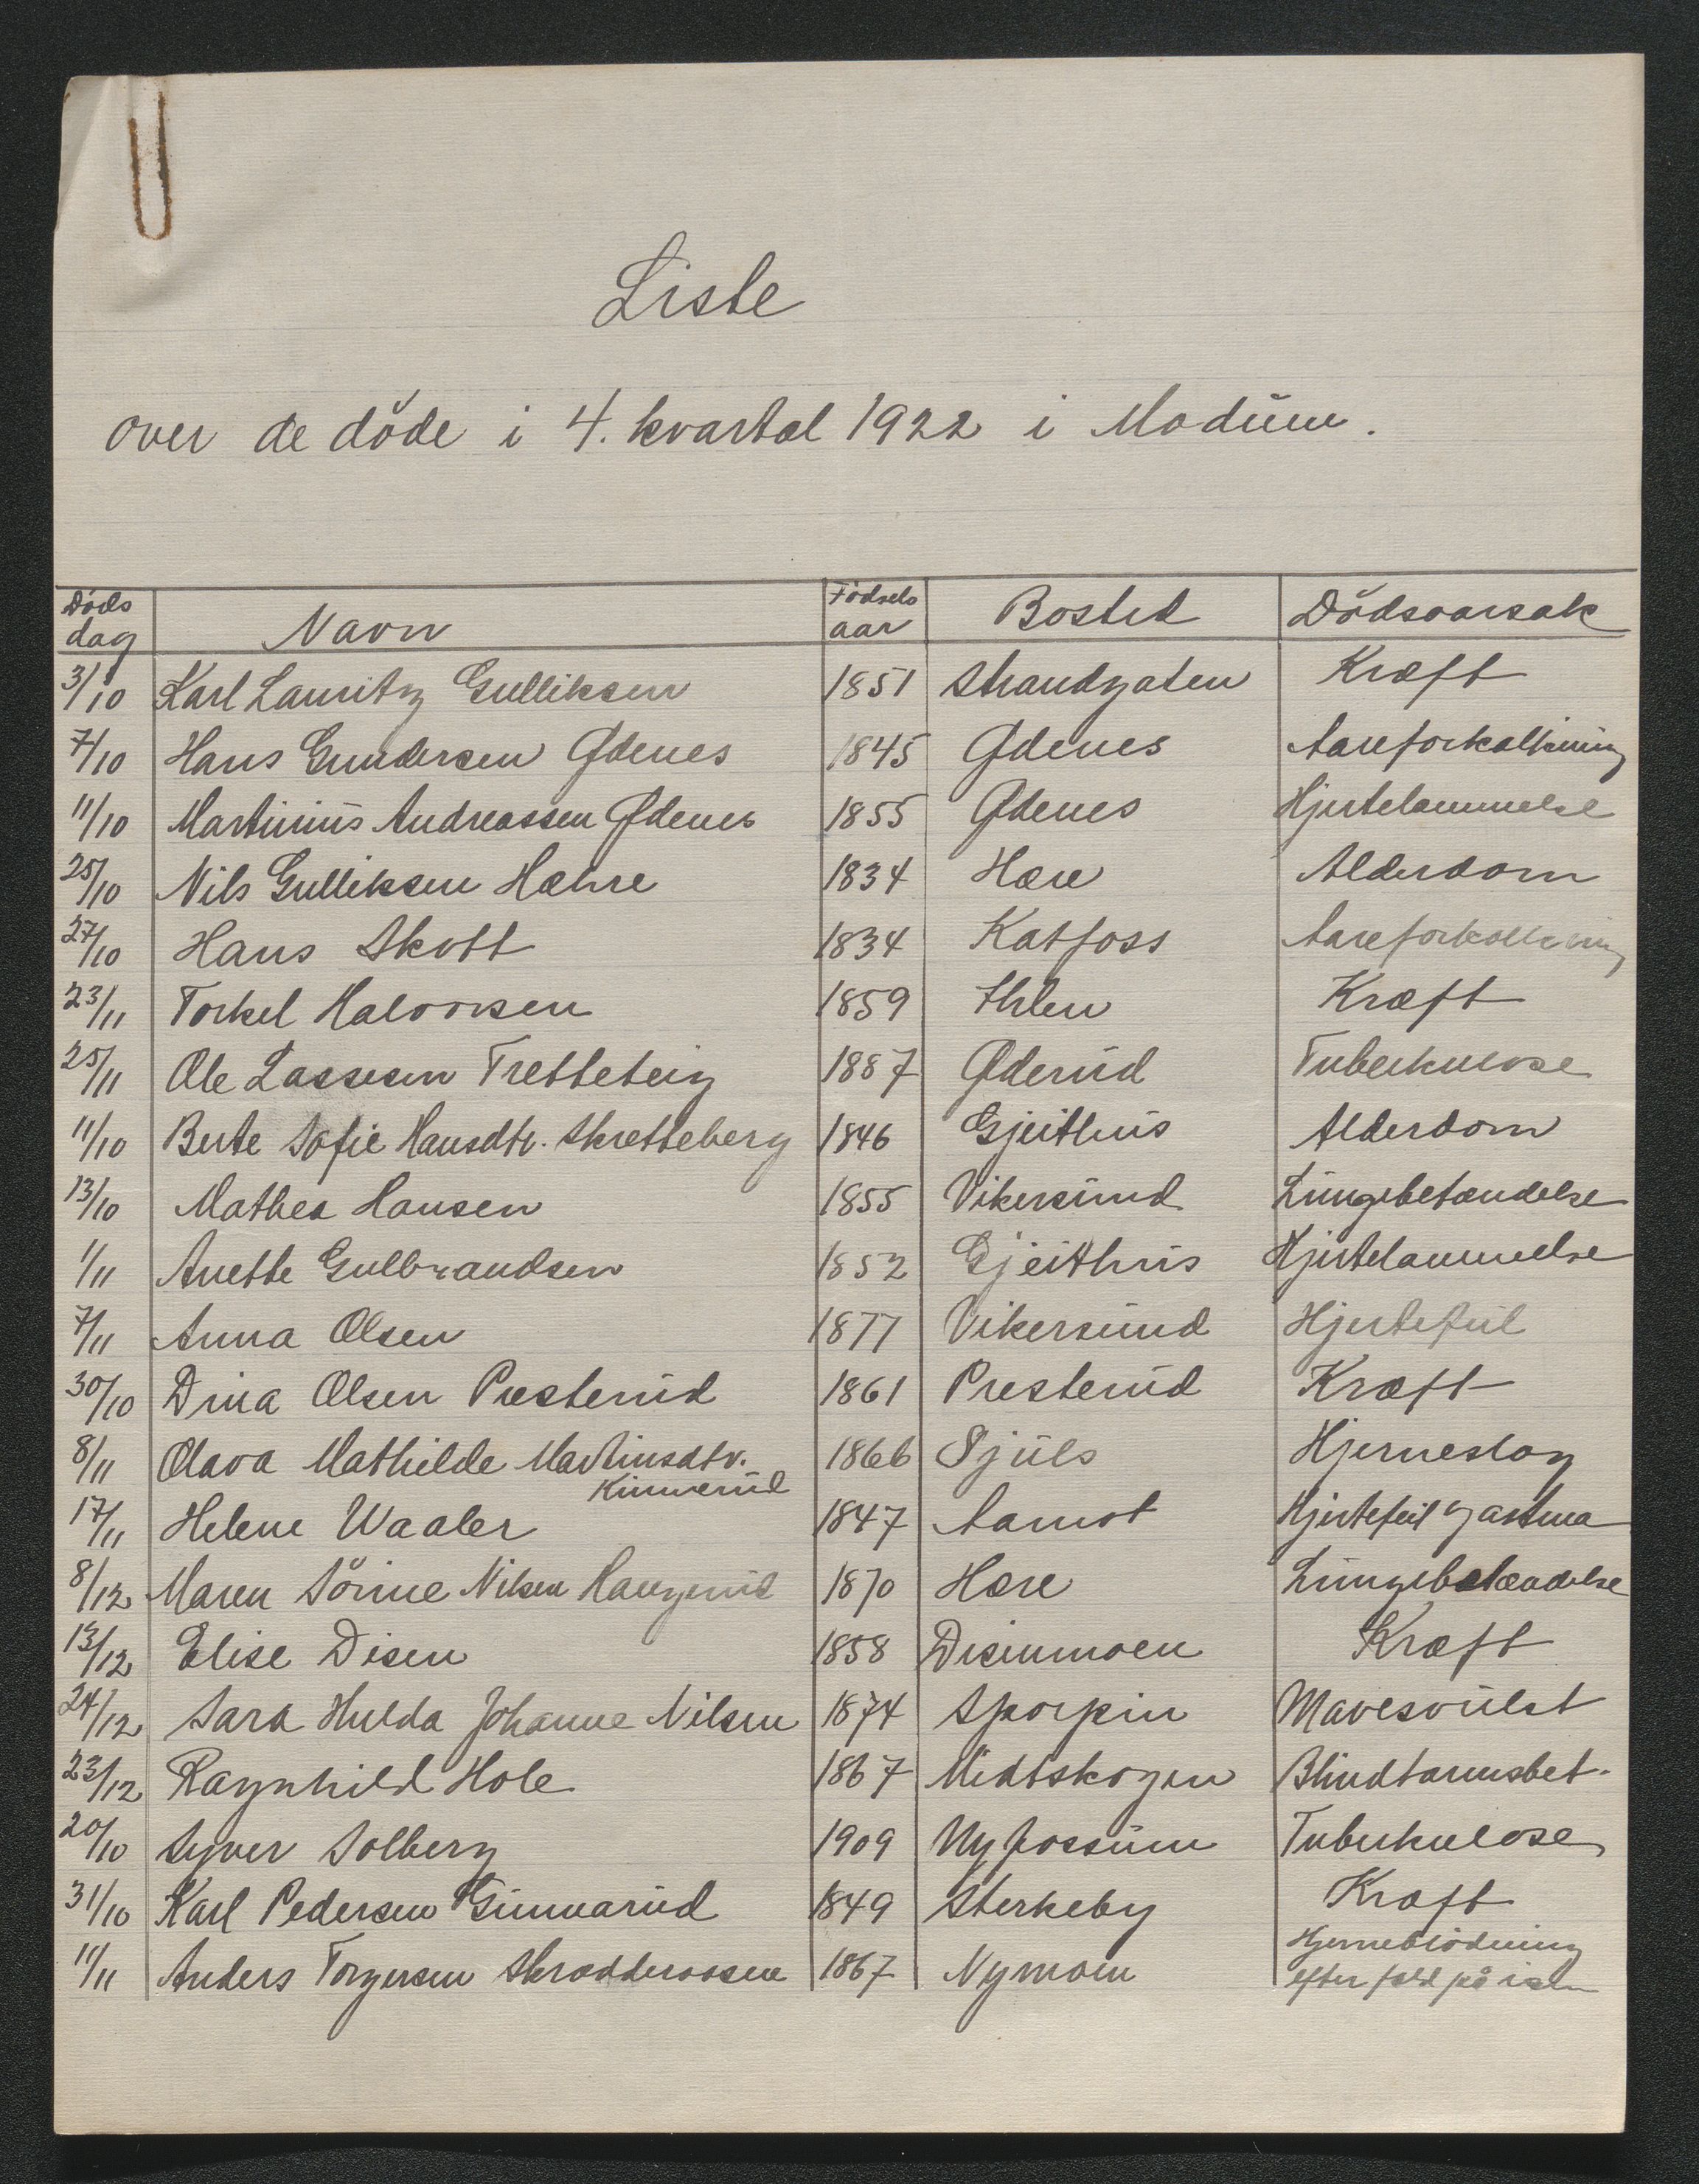 Liste
over de döde i 4. kvartal 1922 i Modum.
Döds dag Navn Födsels aar Bosted Dödsaarsak
3/10 Karl Lauritz Gulliksen 1851 Strandgaten Kræft
7/10 Hans Gundersen Ødenes 1845 Ødenes Aareforkalkning
11/10 Martinius Andreassen Ødenes 1855 Ødenes Hjertelammelse
25/10 Nils Gulliksen Hæhre 1834 Hære Alderdom
27/10 Hans Skott 1834 Katfoss Aareforkalkning
23/11 Torkel Halvorsen 1859 Ihlen Kræft
25/11 Ole Lassesen Tretteteig 1887 Øderud Tuberkulose
11/10 Berte Sofie Hansdtr. Skretteberg 1846 Gjeithus Alderdom
13/10 Mathea Hansen 1855 Vikersund Lungebetændelse
1/11 Anette Gulbrandsen 1852 Gjeithus Hjertelammelse
7/11 Anna Olsen 1877 Vikersund Hjertefeil
30/10 Dina Olsen Presterud 1861 Presterud Kræft
8/11 Olava Mathilde Martinsdtr. 1866 Sjuls Hjerneslag
Kinnerud
17/11 Helene Waaler 1847 Aamot Hjertefeil og astma
8/12 Maren Sörine Nilsen Haugerud 1870 Hære Lungebetændelse
13/12 Elise Disen 1858 Disenmoen Kræft
24/12 Sara Hulda Johanne Nilsen 1874 Sporpin Mavesvulst
23/12 Ragnhild Hole 1867 Midtskogen Blindtarmsbet.
20/10 Syver Solberg 1909 Ny Fossum Tuberkulose
31/10 Karl Pedersen Gunnarud 1849 Sterkeby Kræft
11/11 Anders Torgersen Skrædderaasen 1867 Nymoen Hjerneblödning
efter fald på isen